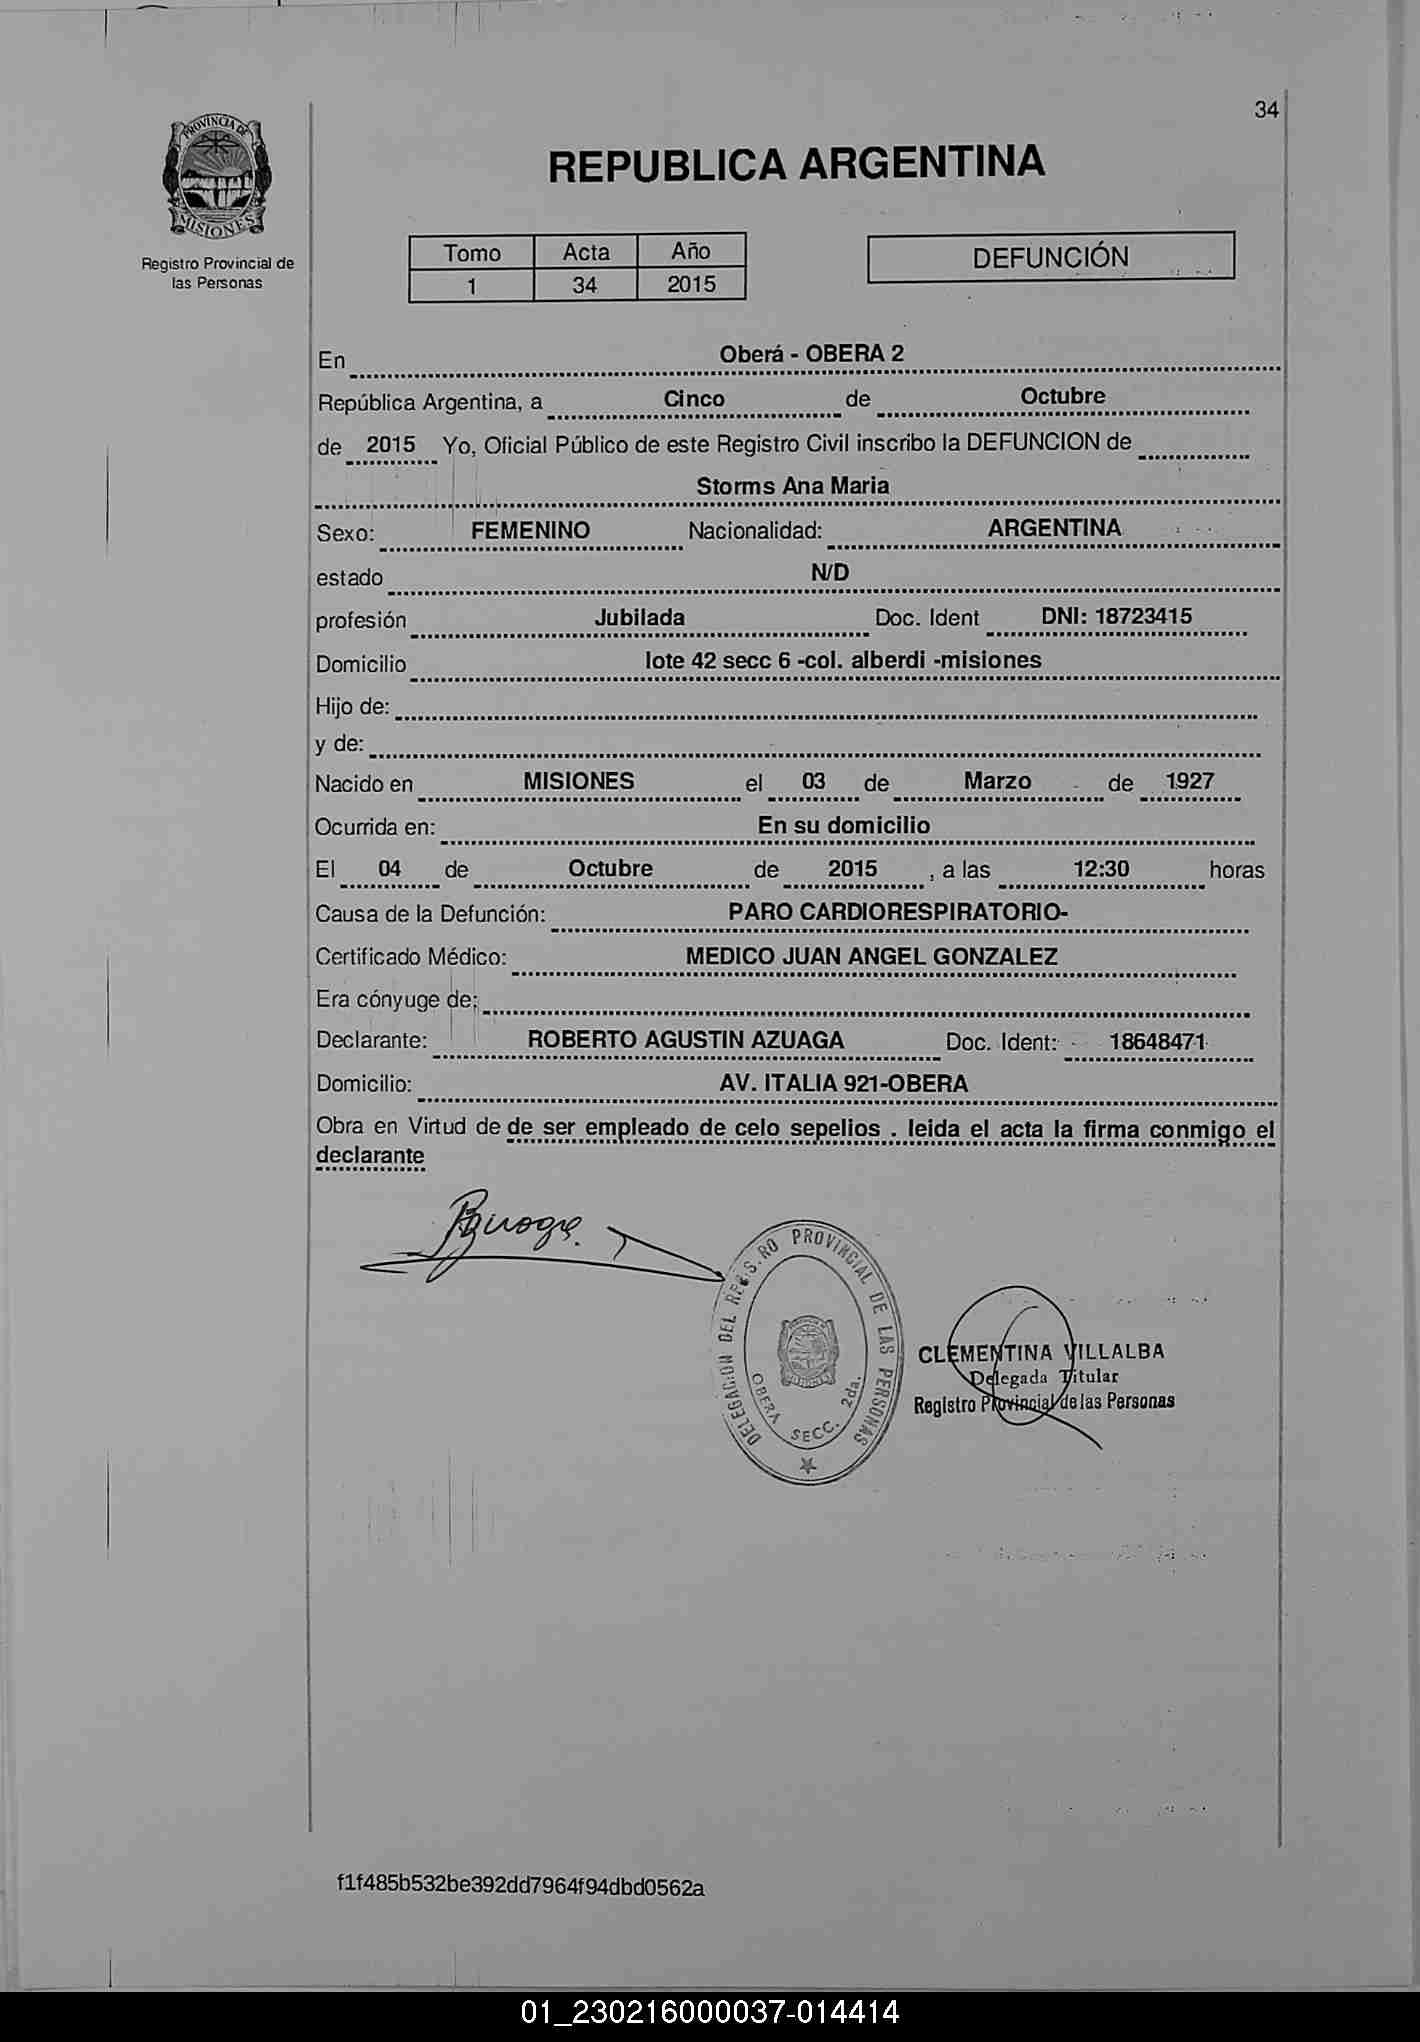 34
PROVINCIA DE
MISIONES
Registro Provincial de
las Personas
REPUBLICA ARGENTINA
Tomo Acta Año
1 34 2015
DEFUNCIÓN
En Oberá - OBERA 2
República Argentina, a Cinco de Octubre
de 2015 Yo, Oficial Público de este Registro Civil inscribo la DEFUNCION de
Storms Ana Maria
Sexo: FEMENINO Nacionalidad: ARGENTINA
estado N/D
profesión Jubilada Doc. Ident DNI: 18723415
Domicilio lote 42 secc 6 -col. alberdi -misiones
Hijo de:
y de:
Nacido en MISIONES el 03 de Marzo de 1927
Ocurrida en: En su domicilio
El 04 de Octubre de 2015 , a las 12:30 horas
Causa de la Defunción: PARO CARDIORESPIRATORIO-
Certificado Médico: MEDICO JUAN ANGEL GONZALEZ
Era cónyuge de:
Declarante: ROBERTO AGUSTIN AZUAGA Doc. Ident: 18648471
Domicilio: AV. ITALIA 921-OBERA
Obra en Virtud de de ser empleado de celo sepelios . leida el acta la firma conmigo el
declarante
DELEGACION DEL REGIS.RO PROVINCIAL DE LAS PERSONAS
OBERA SECC. 2da.
CLEMENTINA VILLALBA
Delegada Titular
Registro Provincial de las Personas
f1f485b532be392dd7964f94dbd0562a
01_230216000037-014414